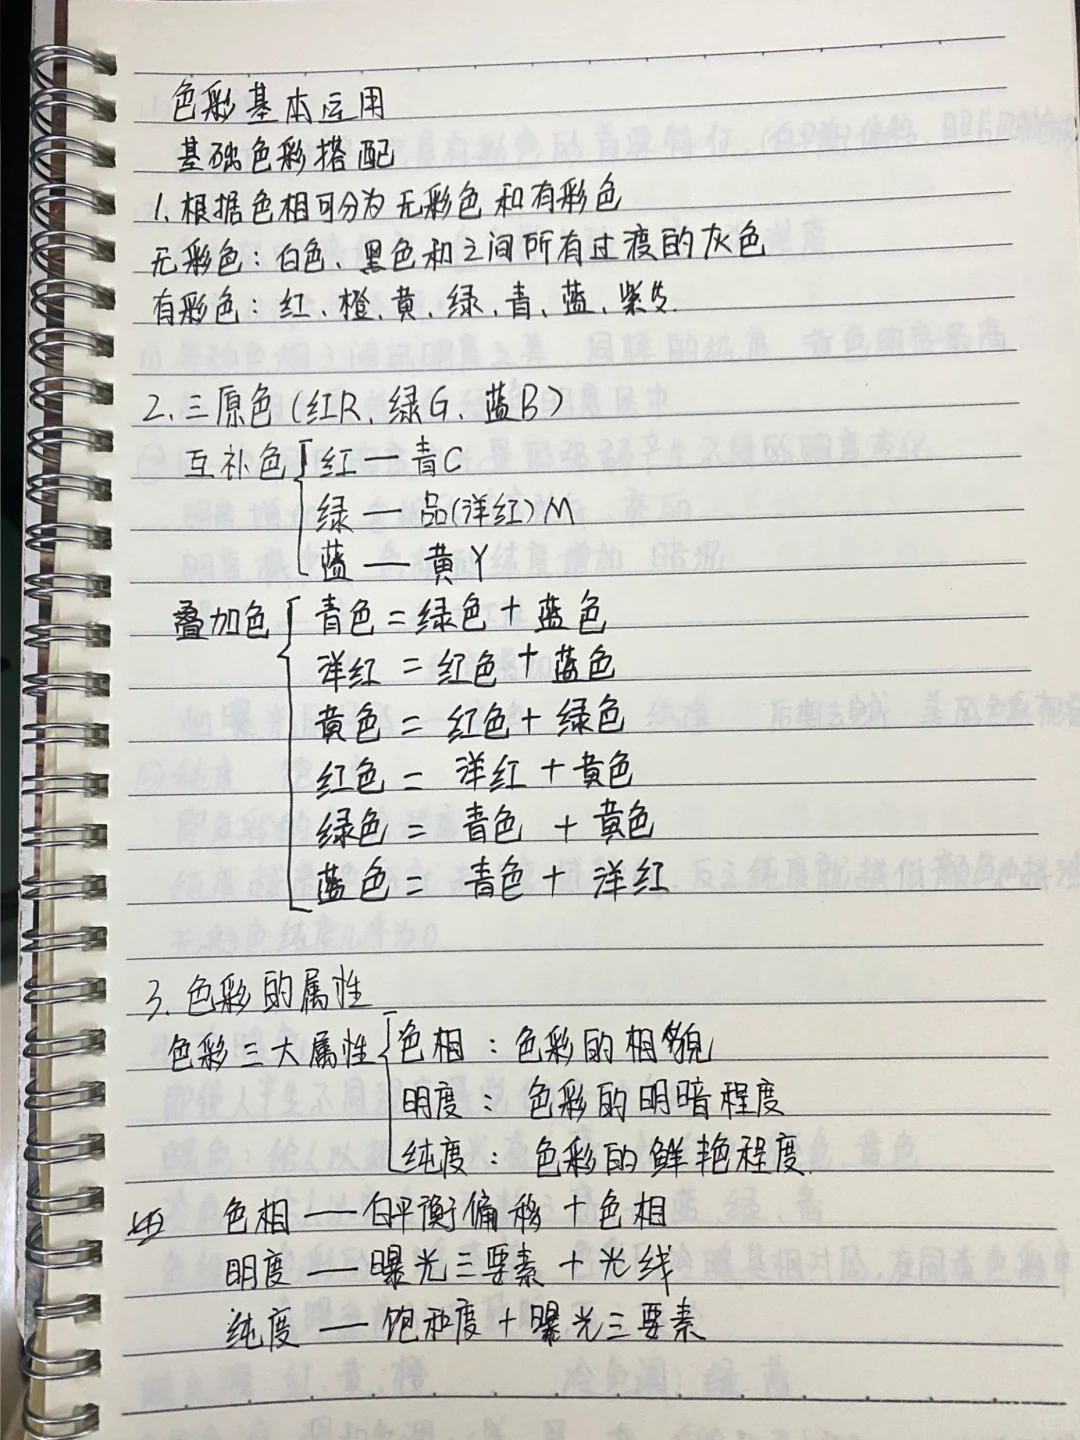 色彩基本运用
基础色彩搭配
1、根据色相可分为无彩色和有彩色
无彩色：白色、黑色和之间所有过渡的灰色
有彩色：红、橙、黄、绿、青、蓝、紫
2、三原色（红R、绿G、蓝B）
互补色 红—青C
绿—品(洋红)M
蓝—黄Y
叠加色 青色=绿色+蓝色
洋红=红色+蓝色
黄色=红色+绿色
红色=洋红+黄色
绿色=青色+黄色
蓝色=青色+洋红
3、色彩的属性
色彩三大属性 色相：色彩的相貌
明度：色彩的明暗程度
纯度：色彩的鲜艳程度
色相—白平衡偏移+色相
明度—曝光三要素+光线
纯度—饱和度+曝光三要素